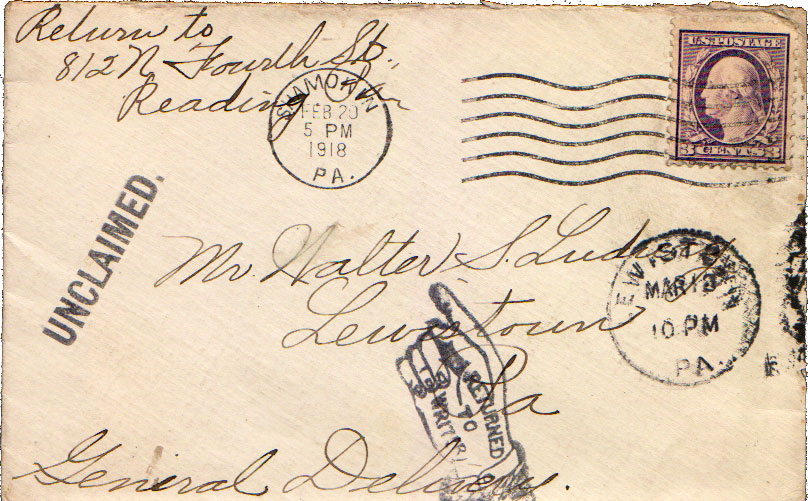 Return to
812 N Fourth St.,
Reading Pa
SHAMOKIN
FEB 20
5 PM
1918
PA.
U.S. POSTAGE
3 CENTS 3
UNCLAIMED.
Mr. Walter S.
Lewistown
Pa
General Delivery.
LEWISTOWN
MAR
10 PM
PA.
RETURNED
TO
WRITER